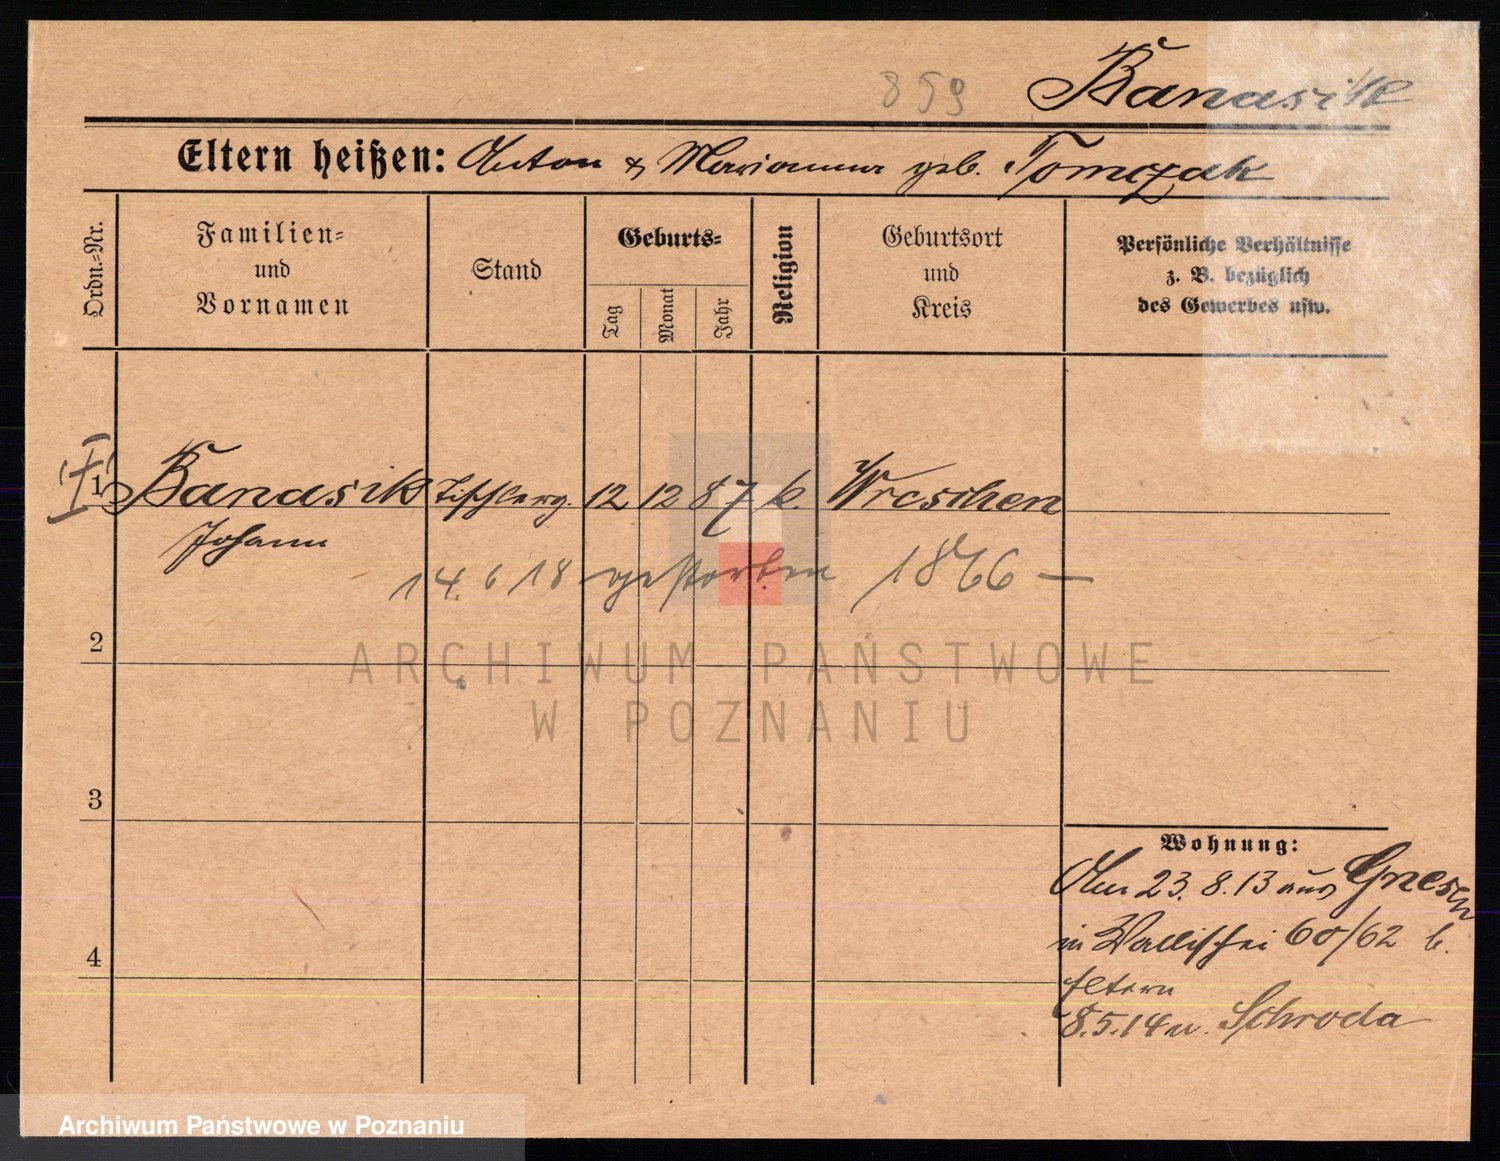 859 Banasik
Eltern heißen: Anton & Marianna geb. Tomczak
Ordn.-Nr.
Familien-
und
Vornamen
Stand
Geburts-
Tag
Monat
Jahr
Religion
Geburtsort
und
Kreis
Persönliche Verhältnisse
z. B. bezüglich
des Gewerbes usw.
1 Banasik Tischlerg. 12 12 87 k. Wreschen
Johann
14. 6 18 gestorben 1866 —
2
ARCHIWUM PAŃSTWOWE
W POZNANIU
3
Wohnung:
Am 23. 8. 13 aus Gnesen
in Wallischei 60/62 b.
4
Eltern
8.5.14 n. Schroda
Archiwum Państwowe w Poznaniu